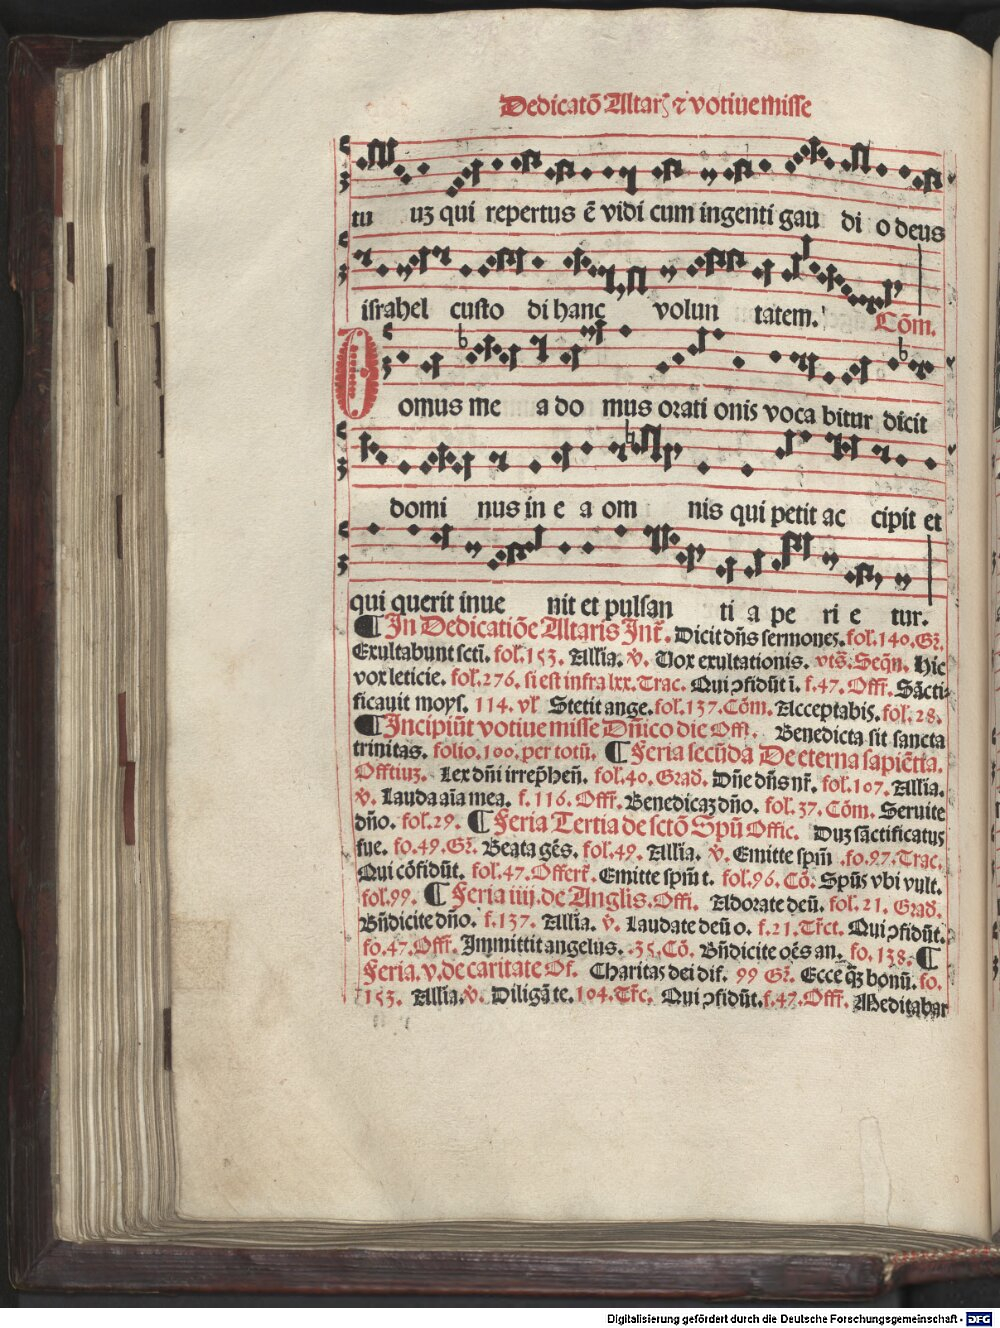 Dedicatō Altarꝭ ⁊ votiue misse
tu uꝫ qui repertus ē vidi cum ingenti gau di o deus
israhel custo di hanc volun tatem. Cōm.
Domus me a do mus orati onis voca bitur dicit
domi nus in e a om nis qui petit ac cipit et
qui querit inue nit et pulsan ti a pe ri e tur.
¶ In Dedicatiōe Altaris Int̄. Dicit dn̄s sermones. fol. 140. Gr̄.
Exultabunt sctī. fol. 153. Allīa. v̄. Vox exultationis. vts̄. Seqn̄. Hic
vox leticie. fol. 276. si est infra lxx. Trac. Qui ↄfidūt ī. f. 47. Offr̄. Sācti-
ficauit moys. 114. vl̄ Stetit ange. fol. 137. Cōm. Acceptabis. fol. 28.
¶ Incipiūt votiue misse Dn̄ico die Offi. Benedicta sit sancta
trinitas. folio. 100. per totū. ¶ Feria secūda De eterna sapiētia.
Offtiuꝫ. Lex dn̄i irrep̄hen̄. fol. 40. Grad. Dn̄e dn̄s nr̄. fol. 107. Allīa.
v̄. Lauda aīa mea. f. 116. Offr̄. Benedicaꝫ dn̄o. fol. 37. Cōm. Seruite
dn̄o. fol. 29. ¶ Feria Tertia de sctō Spū Offic. Duꝫ sāctificatus
fue. fo. 49. Gr̄. Beata gēs. fol. 49. Allīa. v̄. Emitte spm̄. fo. 97. Trac.
Qui cōfidūt. fol. 47. Offert̄. Emitte spm̄ t. fol. 96. Cō. Spūs vbi vult.
fol. 99. ¶ Feria iiij. de Anglis. Offi. Adorate deū. fol. 21. Grad.
Bn̄dicite dn̄o. f. 137. Allīa. v̄. Laudate deū o. f. 21. Tr̄ct. Qui ↄfidūt.
fo. 47. Offr̄. Immittit angelus. .35. Cō. Bn̄dicite oēs an. fo. 138. ¶
Feria. v. de caritate Of. Charitas dei dif. 99 Gr̄. Ecce qꝫ̄ bonū. fo.
153. Allīa. v̄. Diligā te. 104. Tr̄c. Qui ↄfidūt. f. 47. Offr̄. Meditabar
Digitalisierung gefördert durch die Deutsche Forschungsgemeinschaft - DFG